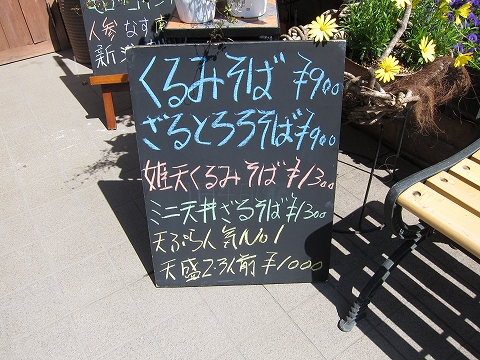 人参 なす
新
くるみそば ¥900
ざるとろろそば ¥900
姫天くるみそば ¥1300
ミニ天丼ざるそば ¥1300
天ぷら人気No1
天盛2・3人前 ¥1000